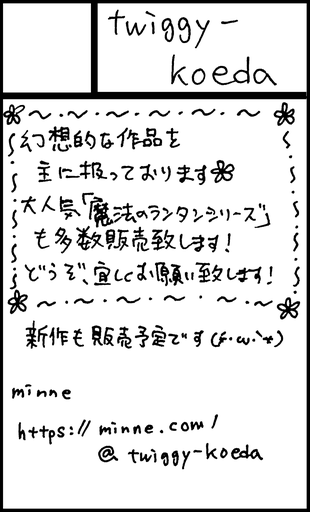 twiggy-
koeda
幻想的な作品を
主に扱っております
大人気「魔法のランタンシリーズ」
も多数販売致します!
どうぞ、宜しくお願い致します!
新作も販売予定です(*´ω`*)
minne
https://minne.com/
@twiggy-koeda